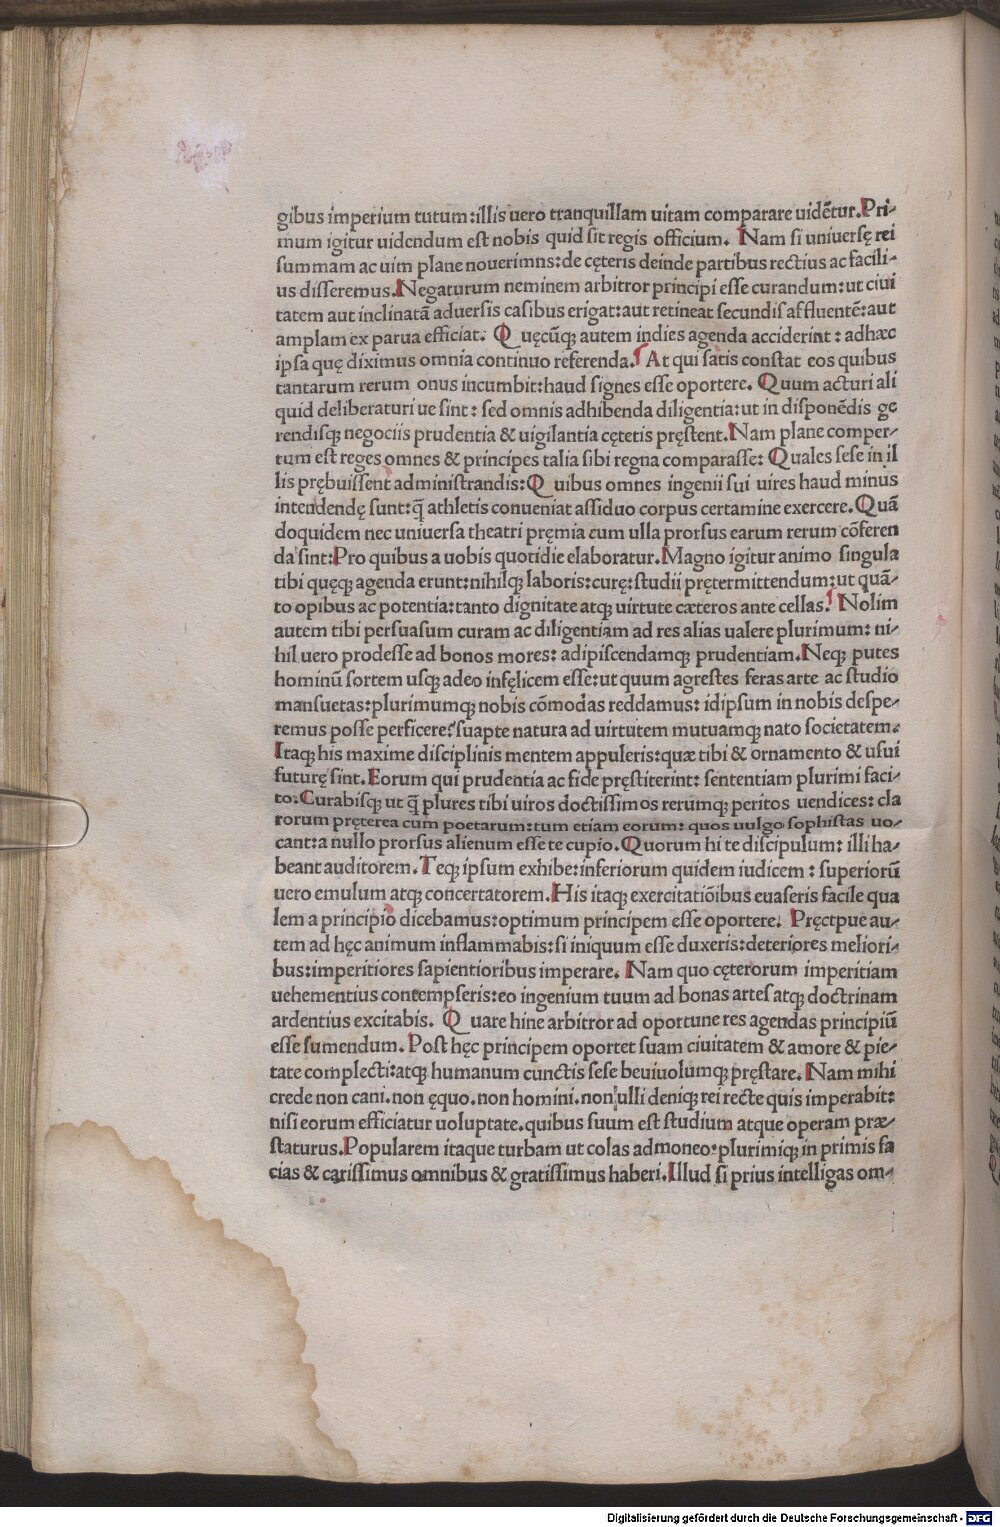 gibus imperium tutum:illis uero tranquillam uitam comparare uidẽtur.Pri-
mum igitur uidendum est nobis quid sit regis officium. Nam si uniuersę rei
summam ac uim plane nouerimns:de cęteris deinde partibus rectius ac facili-
us disseremus.Negaturum neminem arbitror principi esse curandum:ut ciui
tatem aut inclinatã aduersis casibus erigat:aut retineat secundis affluentẽ:aut
amplam ex parua efficiat. Quęcũꝗ autem indies agenda acciderint : adhæc
ipsa quę diximus omnia continuo referenda. At qui satis constat eos quibus
tantarum rerum onus incumbit:haud signes esse oportere. Quum acturi ali
quid deliberaturi ue sint: sed omnis adhibenda diligentia:ut in disponẽdis ge
rendisꝗ negociis prudentia & uigilantia cętetis pręstent.Nam plane comper-
tum est reges omnes & principes talia sibi regna comparasse: Quales sese in il
lis prębuissent administrandis:Quibus omnes ingenii sui uires haud minus
intendendę sunt:ꝗ̃ athletis conueniat assiduo corpus certamine exercere.Quã
doquidem nec uniuersa theatri pręmia cum ulla prorsus earum rerum cõferen
da sint:Pro quibus a uobis quotidie elaboratur.Magno igitur animo singula
tibi quęꝗ agenda erunt:nihilꝗ laboris:curę:studii prętermittendum:ut quã-
to opibus ac potentia:tanto dignitate atꝗ uirtute cæteros ante cellas. Nolim
autem tibi persuasum curam ac diligentiam ad res alias ualere plurimum: ni-
hil uero prodesse ad bonos mores: adipiscendamꝗ prudentiam.Neꝗ putes
hominũ sortem usꝗ adeo infęlicem esse:ut quum agrestes feras arte ac studio
mansuetas:plurimumꝗ nobis cõmodas reddamus: idipsum in nobis despe-
remus posse perficere?suapte natura ad uirtutem mutuamꝗ nato societatem.
Itaꝗ his maxime disciplinis mentem appuleris:quæ tibi & ornamento & usui
futurę sint.Eorum qui prudentia ac fide pręstiterint: sententiam plurimi faci-
to.Curabisꝗ ut ꝗ̃ plures tibi uiros doctissimos rerumꝗ peritos uendices: cla
rorum pręterea cum poetarum:tum etiam eorum: quos uulgo sophistas uo-
cant:a nullo prorsus alienum esse te cupio.Quorum hi te discipulum: illi ha-
beant auditorem.Teꝗ ipsum exhibe:inferiorum quidem iudicem : superiorũ
uero emulum atꝗ concertatorem.His itaꝗ exercitatiõibus euaseris facile qua
lem a principio dicebamus:optimum principem esse oportere. Pręctpue au-
tem ad hęc animum inflammabis:si iniquum esse duxeris:deteriores meliori-
bus:imperitiores sapientioribus imperare. Nam quo cęterorum imperitiam
uehementius contempseris:eo ingenium tuum ad bonas artes atꝗ doctrinam
ardentius excitabis. Quare hine arbitror ad oportune res agendas principiũ
esse sumendum.Post hęc principem oportet suam ciuitatem & amore & pie-
tate complecti:atꝗ humanum cunctis sese beuiuolumꝗ pręstare.Nam mihi
crede non cani.non ęquo.non homini.non ulli deniꝗ rei recte quis imperabit:
nisi eorum efficiatur uoluptate.quibus suum est studium atque operam præ-
staturus.Popularem itaque turbam ut colas admoneo:plurimiꝗ in primis fa
cias & carissimus omnibus & gratissimus haberi.Illud si prius intelligas om-
Digitalisierung gefördert durch die Deutsche Forschungsgemeinschaft - DFG